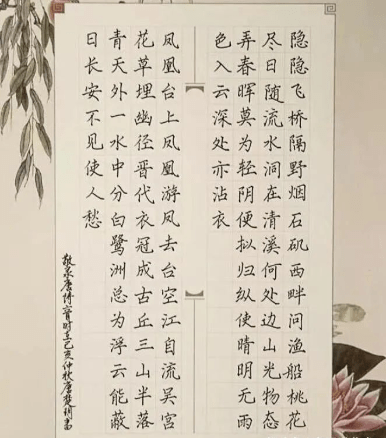 隐隐飞桥隔野烟石矶西畔问渔船桃花
尽日随流水洞在清溪何处边山光物态
弄春晖莫为轻阴便拟归纵使晴明无雨
色入云深处亦沾衣
凤凰台上凤凰游凤去台空江自流吴宫
花草埋幽径晋代衣冠成古丘三山半落
青天外一水中分白鹭洲总为浮云能蔽
日长安不见使人愁
敬录唐诗时己亥仲秋唐楚书